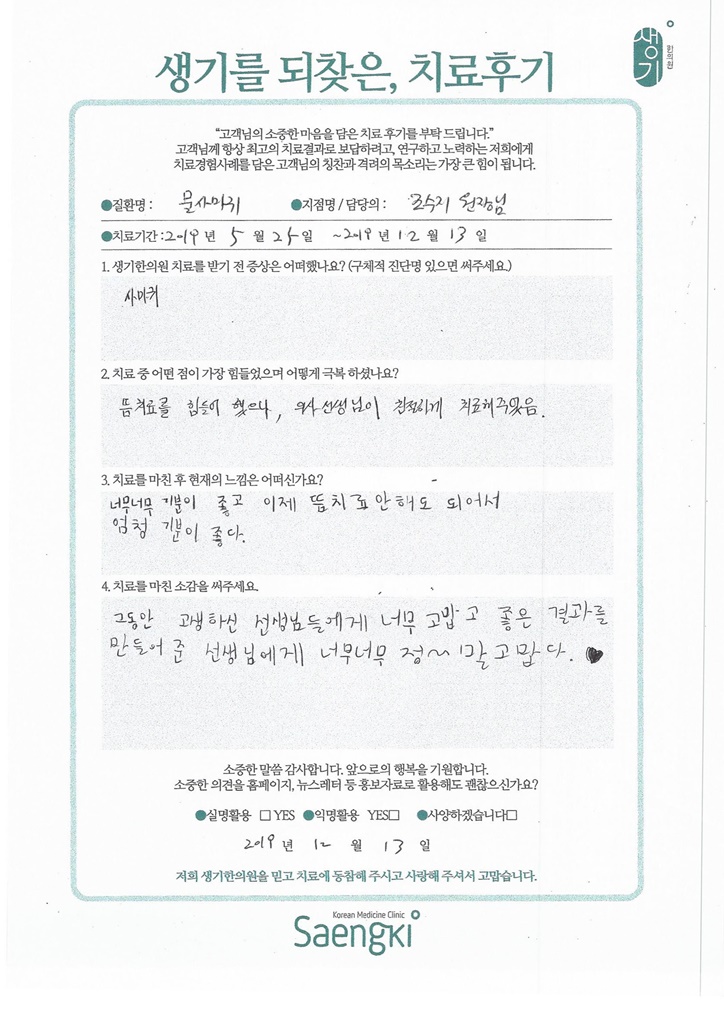 생기한의원
생기를 되찾은, 치료후기
"고객님의 소중한 마음을 담은 치료 후기를 부탁 드립니다."
고객님께 항상 최고의 치료결과로 보답하려고, 연구하고 노력하는 저희에게
치료경험사례를 담은 고객님의 칭찬과 격려의 목소리는 가장 큰 힘이 됩니다.
●질환명 : 물사마귀 ●지점명 / 담당의 : 조수지 원장님
●치료기간 : 2019 년 5 월 25 일 ~2019 년 12 월 13 일
1. 생기한의원 치료를 받기 전 증상은 어떠했나요? (구체적 진단명 있으면 써주세요.)
사마귀
2. 치료 중 어떤 점이 가장 힘들었으며 어떻게 극복 하셨나요?
뜸치료를 힘들어 했으나, 의사선생님이 친절하게 치료해주었음.
3. 치료를 마친 후 현재의 느낌은 어떠신가요?
너무너무 기분이 좋고 이제 뜸치료안해도 되어서
엄청 기분이 좋다.
4. 치료를 마친 소감을 써주세요.
그동안 고생하신 선생님들에게 너무 고맙고 좋은 결과를
만들어 준 선생님에게 너무너무 정~말 고맙다. ♥
소중한 말씀 감사합니다. 앞으로의 행복을 기원합니다.
소중한 의견을 홈페이지, 뉴스레터 등 홍보자료로 활용해도 괜찮으신가요?
●실명활용 □ YES ●익명활용 YES□ ●사양하겠습니다□
2019 년 12 월 13 일
저희 생기한의원을 믿고 치료에 동참해 주시고 사랑해 주셔서 고맙습니다.
Korean Medicine Clinic
Saengki